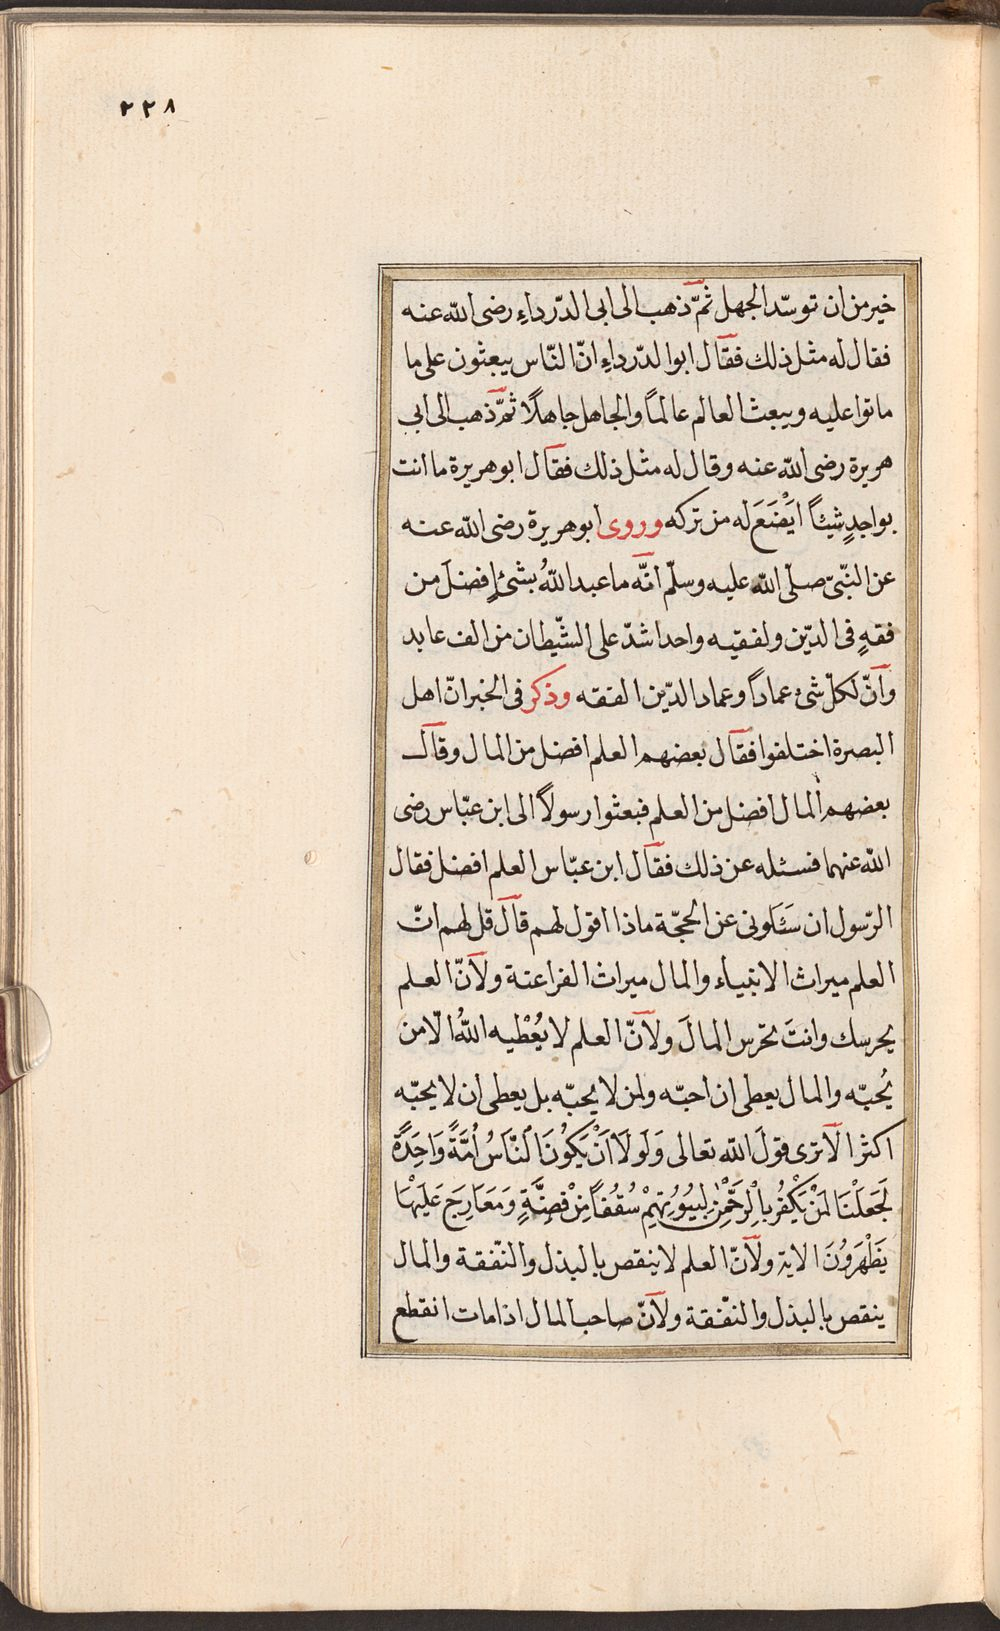 ٢٢٨
خير من ان توسّد الجهل ثمّ ذهب الى ابى الدّرداء رضى اللّه عنه
فقال له مثل ذلك فقال ابو الدّرداء انّ النّاس يبعثون على ما
ماتوا عليه ويبعث العالم عالماً والجاهل جاهلًا ثمّ ذهب الى ابى
هريرة رضى اللّه عنه وقال له مثل ذلك فقال ابو هريرة ما انت
بواجدٍ شيئاً ايْضَعَ له من تركه وروى ابو هريرة رضى اللّه عنه
عن النّبىّ صلّى اللّه عليه وسلّم انّه ما عبد اللّهُ بشئٍ افضلَ من
فقهٍ فى الدّين ولفقيه واحد اشدّ على الشّيطان من الف عابد
وانّ لكلّ شئ عماداً وعماد الدّين الفقه وذكر فى الخبر انّ اهل
البصرة اختلفوا فقال بعضهم العلم افضل من المال وقال
بعضهم المال افضل من العلم فبعثوا رسولاً الى ابن عبّاس رضى
اللّه عنهما فسئله عن ذلك فقال ابن عبّاس العلم افضل فقال
الرّسول ان سَئَلونى عن الحجّة ماذا اقول لهم قال قل لهم انّ
العلم ميراث الانبياء والمال ميراث الفراعنة ولانّ العلم
يحرسك وانتَ تحرس المالَ ولانّ العلم لا يُعْطيه اللّهُ الّا من
يُحبّه والمال يعطى ان احبّه ولمن لا يحبّه بل يعطى ان لا يحبّه
اكثر الا ترى قولَ اللّه تعالى وَلَولَا اَنْ يَكُونَ النَّاسُ اُمَّةً وَاحِدَةً
لَجَعَلْنَا لمَنْ يَكْفُرُ بِالرَحْمٰنِ لِبُيُوتِهِمْ سُقُفاً مِنْ فِضَّةٍ وَمَعَارِجَ عَلَيْهَا
يَظْهَرُونَ الاية ولانّ العلم لا ينقص بالبذل والنّفقة والمال
ينقص بالبذل والنفّقة ولانّ صاحب المال اذا مات انقطع